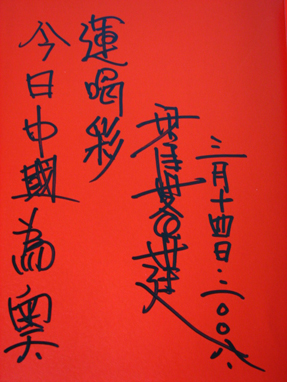 今日中國為奧
運喝彩
三月十四日·二〇〇六